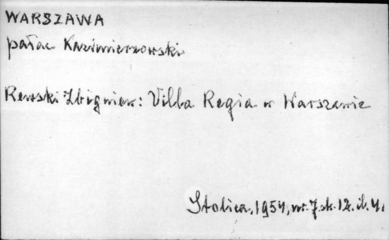 WARSZAWA
pałac Kazimierzowski
Rewski Zbigniew: Villa Regia w Warszawie
Stolica, 1954, nr. 7. st. 12. il. 4.